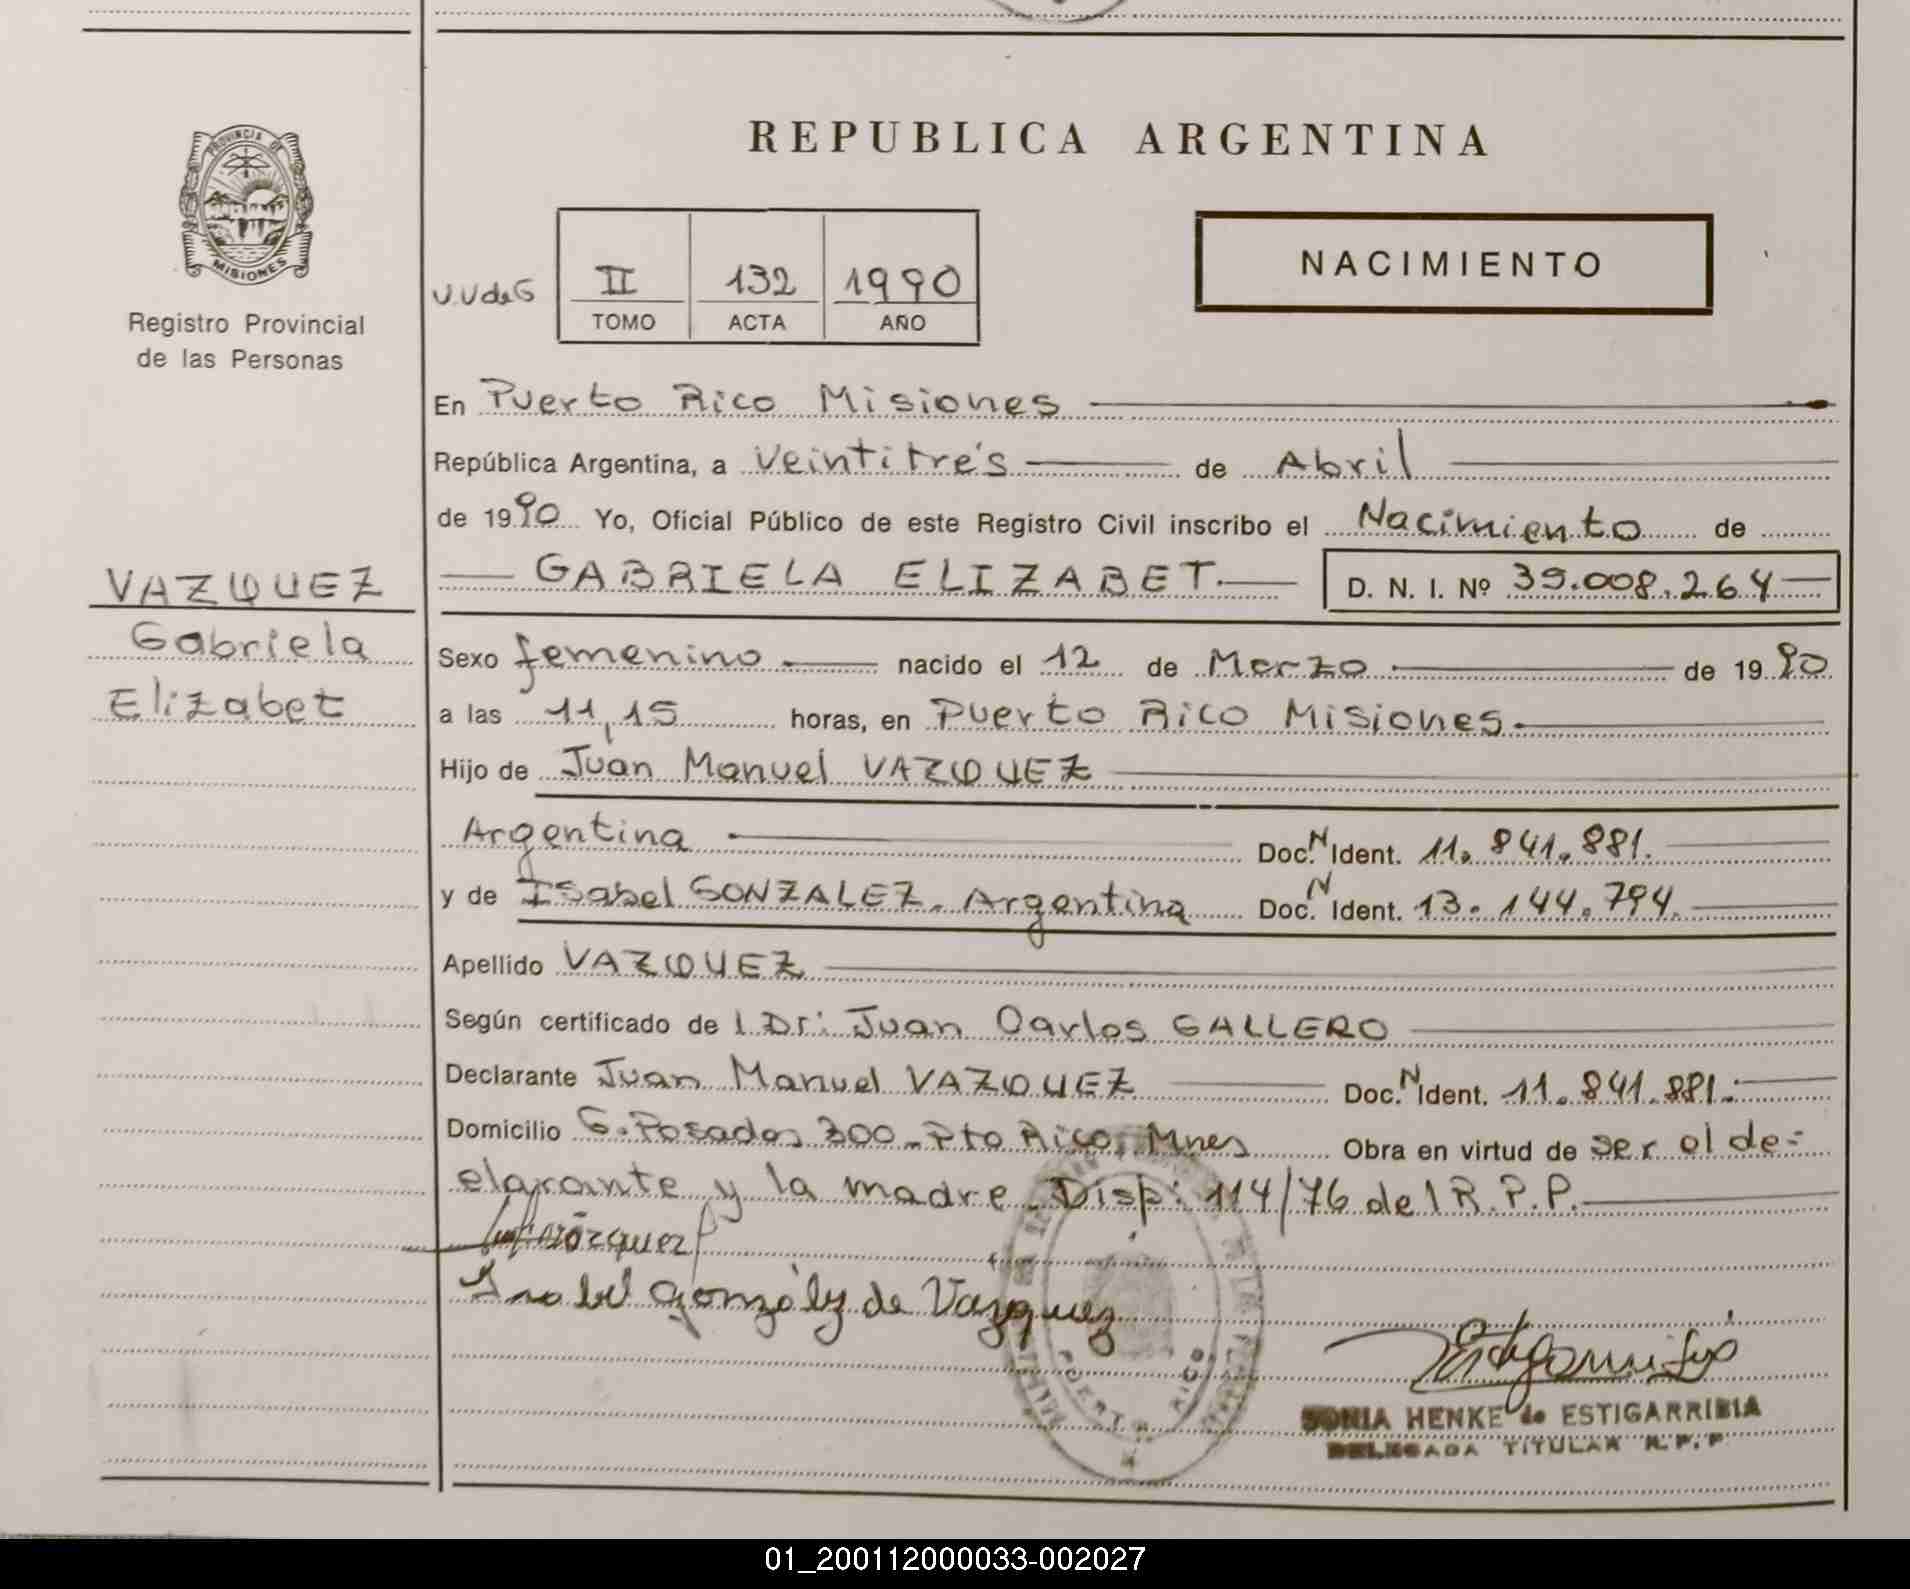 PROVINCIA DE
MISIONES
Registro Provincial
de las Personas
VAZQUEZ
Gabriela
Elizabet
REPUBLICA ARGENTINA
NACIMIENTO
V.V de G
II 132 1990
TOMO ACTA AÑO
En Puerto Rico Misiones
República Argentina, a veintitrés de Abril
de 1990 Yo, Oficial Público de este Registro Civil inscribo el Nacimiento de
GABRIELA ELIZABET. D. N. I. Nº 35.008.264
Sexo femenino nacido el 12 de Marzo de 1990
a las 11,15 horas, en Puerto Rico Misiones.
Hijo de Juan Manuel VAZQUEZ
Argentina Doc. N Ident. 11.841.881.
y de Isabel GONZALEZ. Argentina Doc. N Ident. 13.144.794.
Apellido VAZQUEZ
Según certificado de l Dr: Juan Carlos GALLERO
Declarante Juan Manuel VAZQUEZ Doc. N Ident. 11.841.881.
Domicilio G. Posadas 300 - Pto Rico, Mnes Obra en virtud de ser el de-
clarante y la madre Disp: 114/76 del R.P.P.
Isabel González de Vazquez
PUERTO RICO
SONIA HENKE de ESTIGARRIBIA
DELEGADA TITULAR R.P.P.
01_200112000033-002027